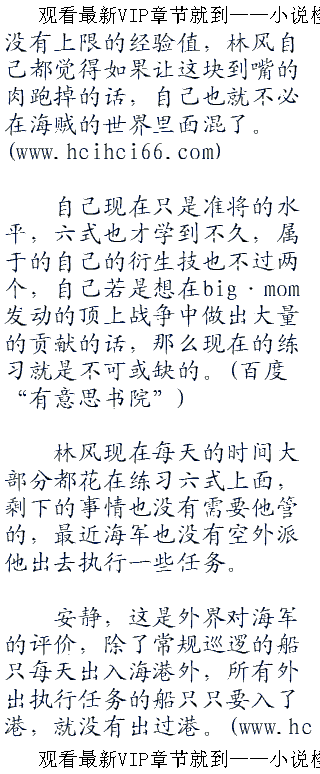 观看最新VIP章节就到——小说检
没有上限的经验值，林风自
己都觉得如果让这块到嘴的
肉跑掉的话，自己也就不必
在海贼的世界里面混了。
(www.hcihci66.com)
自己现在只是准将的水
平，六式也才学到不久，属
于的自己的衍生技也不过两
个，自己若是想在big·mom
发动的顶上战争中做出大量
的贡献的话，那么现在的练
习就是不可或缺的。(百度
“有意思书院”)
林风现在每天的时间大
部分都花在练习六式上面，
剩下的事情也没有需要他管
的，最近海军也没有空外派
他出去执行一些任务。
安静，这是外界对海军
的评价，除了常规巡逻的船
只每天出入海港外，所有外
出执行任务的船只只要入了
港，就没有出过港。(www.hc
观看最新VIP章节就到——小说检